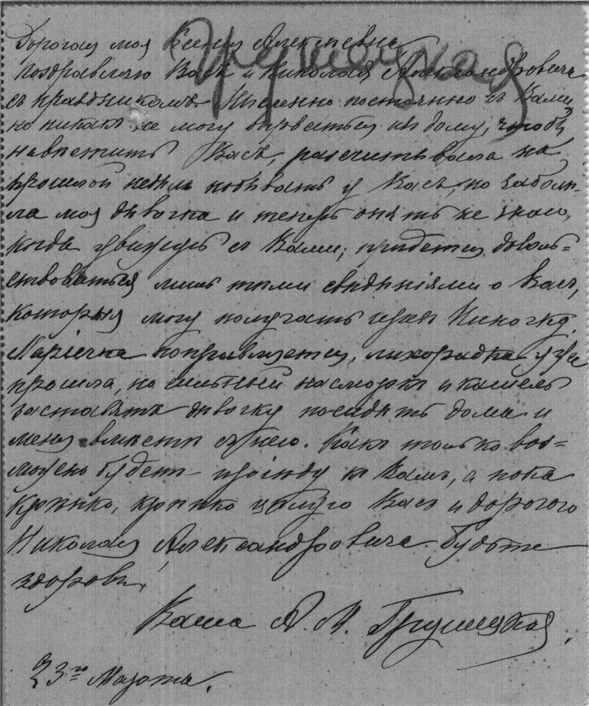 Дорогая моя Ксенія Алексѣевна
Грушецкая
Поздравляю Васъ и Николая Александровича
съ праздникомъ. Мысленно постоянно съ Вами,
но никакъ не могу вырваться изъ дому, чтобы
навѣстить Васъ, разсчитывала на
прошлой недѣлѣ побывать у Васъ, но заболѣ-
ла моя дѣвочка и теперь опять не знаю,
когда увижусь съ Вами; придется доволь-
ствоваться лишь тѣми свѣдѣніями о Васъ,
которыя могу получать черезъ Ниночку.
Марiечка поправляется, лихорадка уже
прошла, но сильный насморкъ и кашель
заставятъ дѣвочку посидѣть дома и
меня вмѣстѣ съ нею. Какъ только воз-
можно будетъ пріѣду къ Вамъ, а пока
крѣпко, крѣпко цѣлую Васъ и дорогого
Николая Александровича. Будьте
здоровы.
Ваша А. М. Грушецкая.
23го Марта.